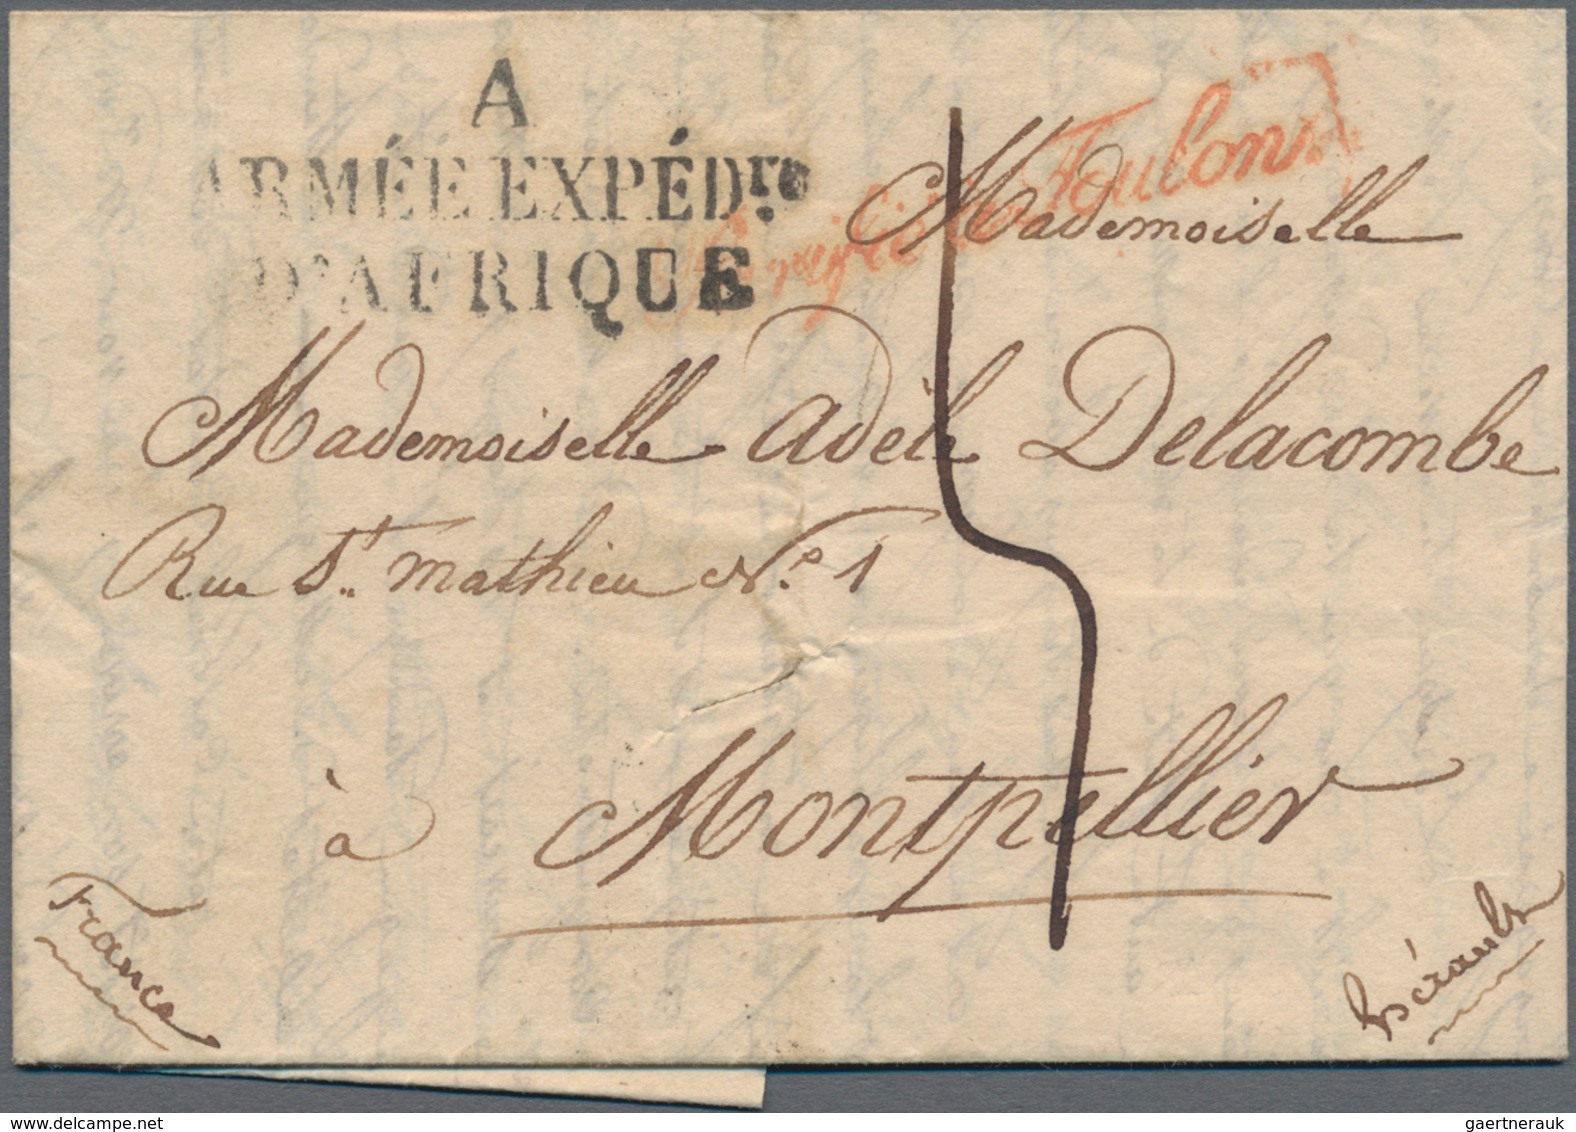 A
ARMÉE EXPÉDre
D'AFRIQUE
Purifié à Toulon
Mademoiselle
Mademoiselle Adèle Delacombe
Rue St. mathieu No. 1
à Montpellier
France
hérault
5
gaertnerauk / www.delcampe.net